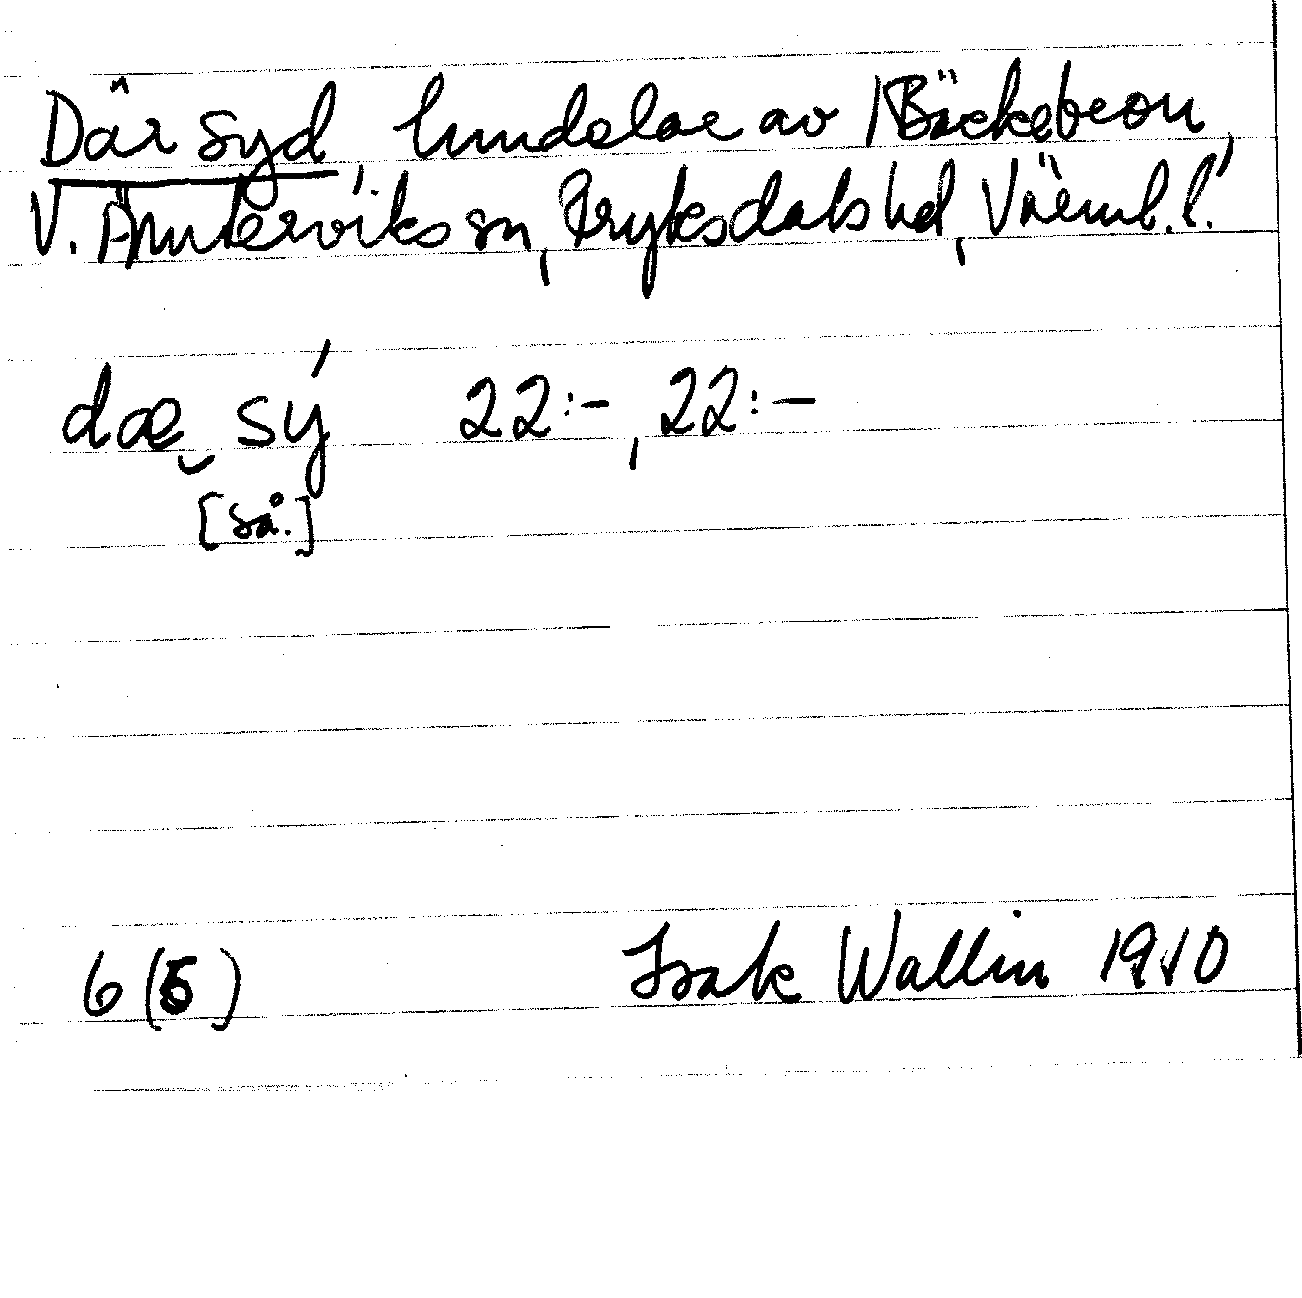 Där Syd, hemdelar av Bäckebron,
V. Ämterviks sn, Fryksdals hd, Värml. l.
dæ sý 22:-, 22:-
[så.]
6 (5) Isak Wallin 1910